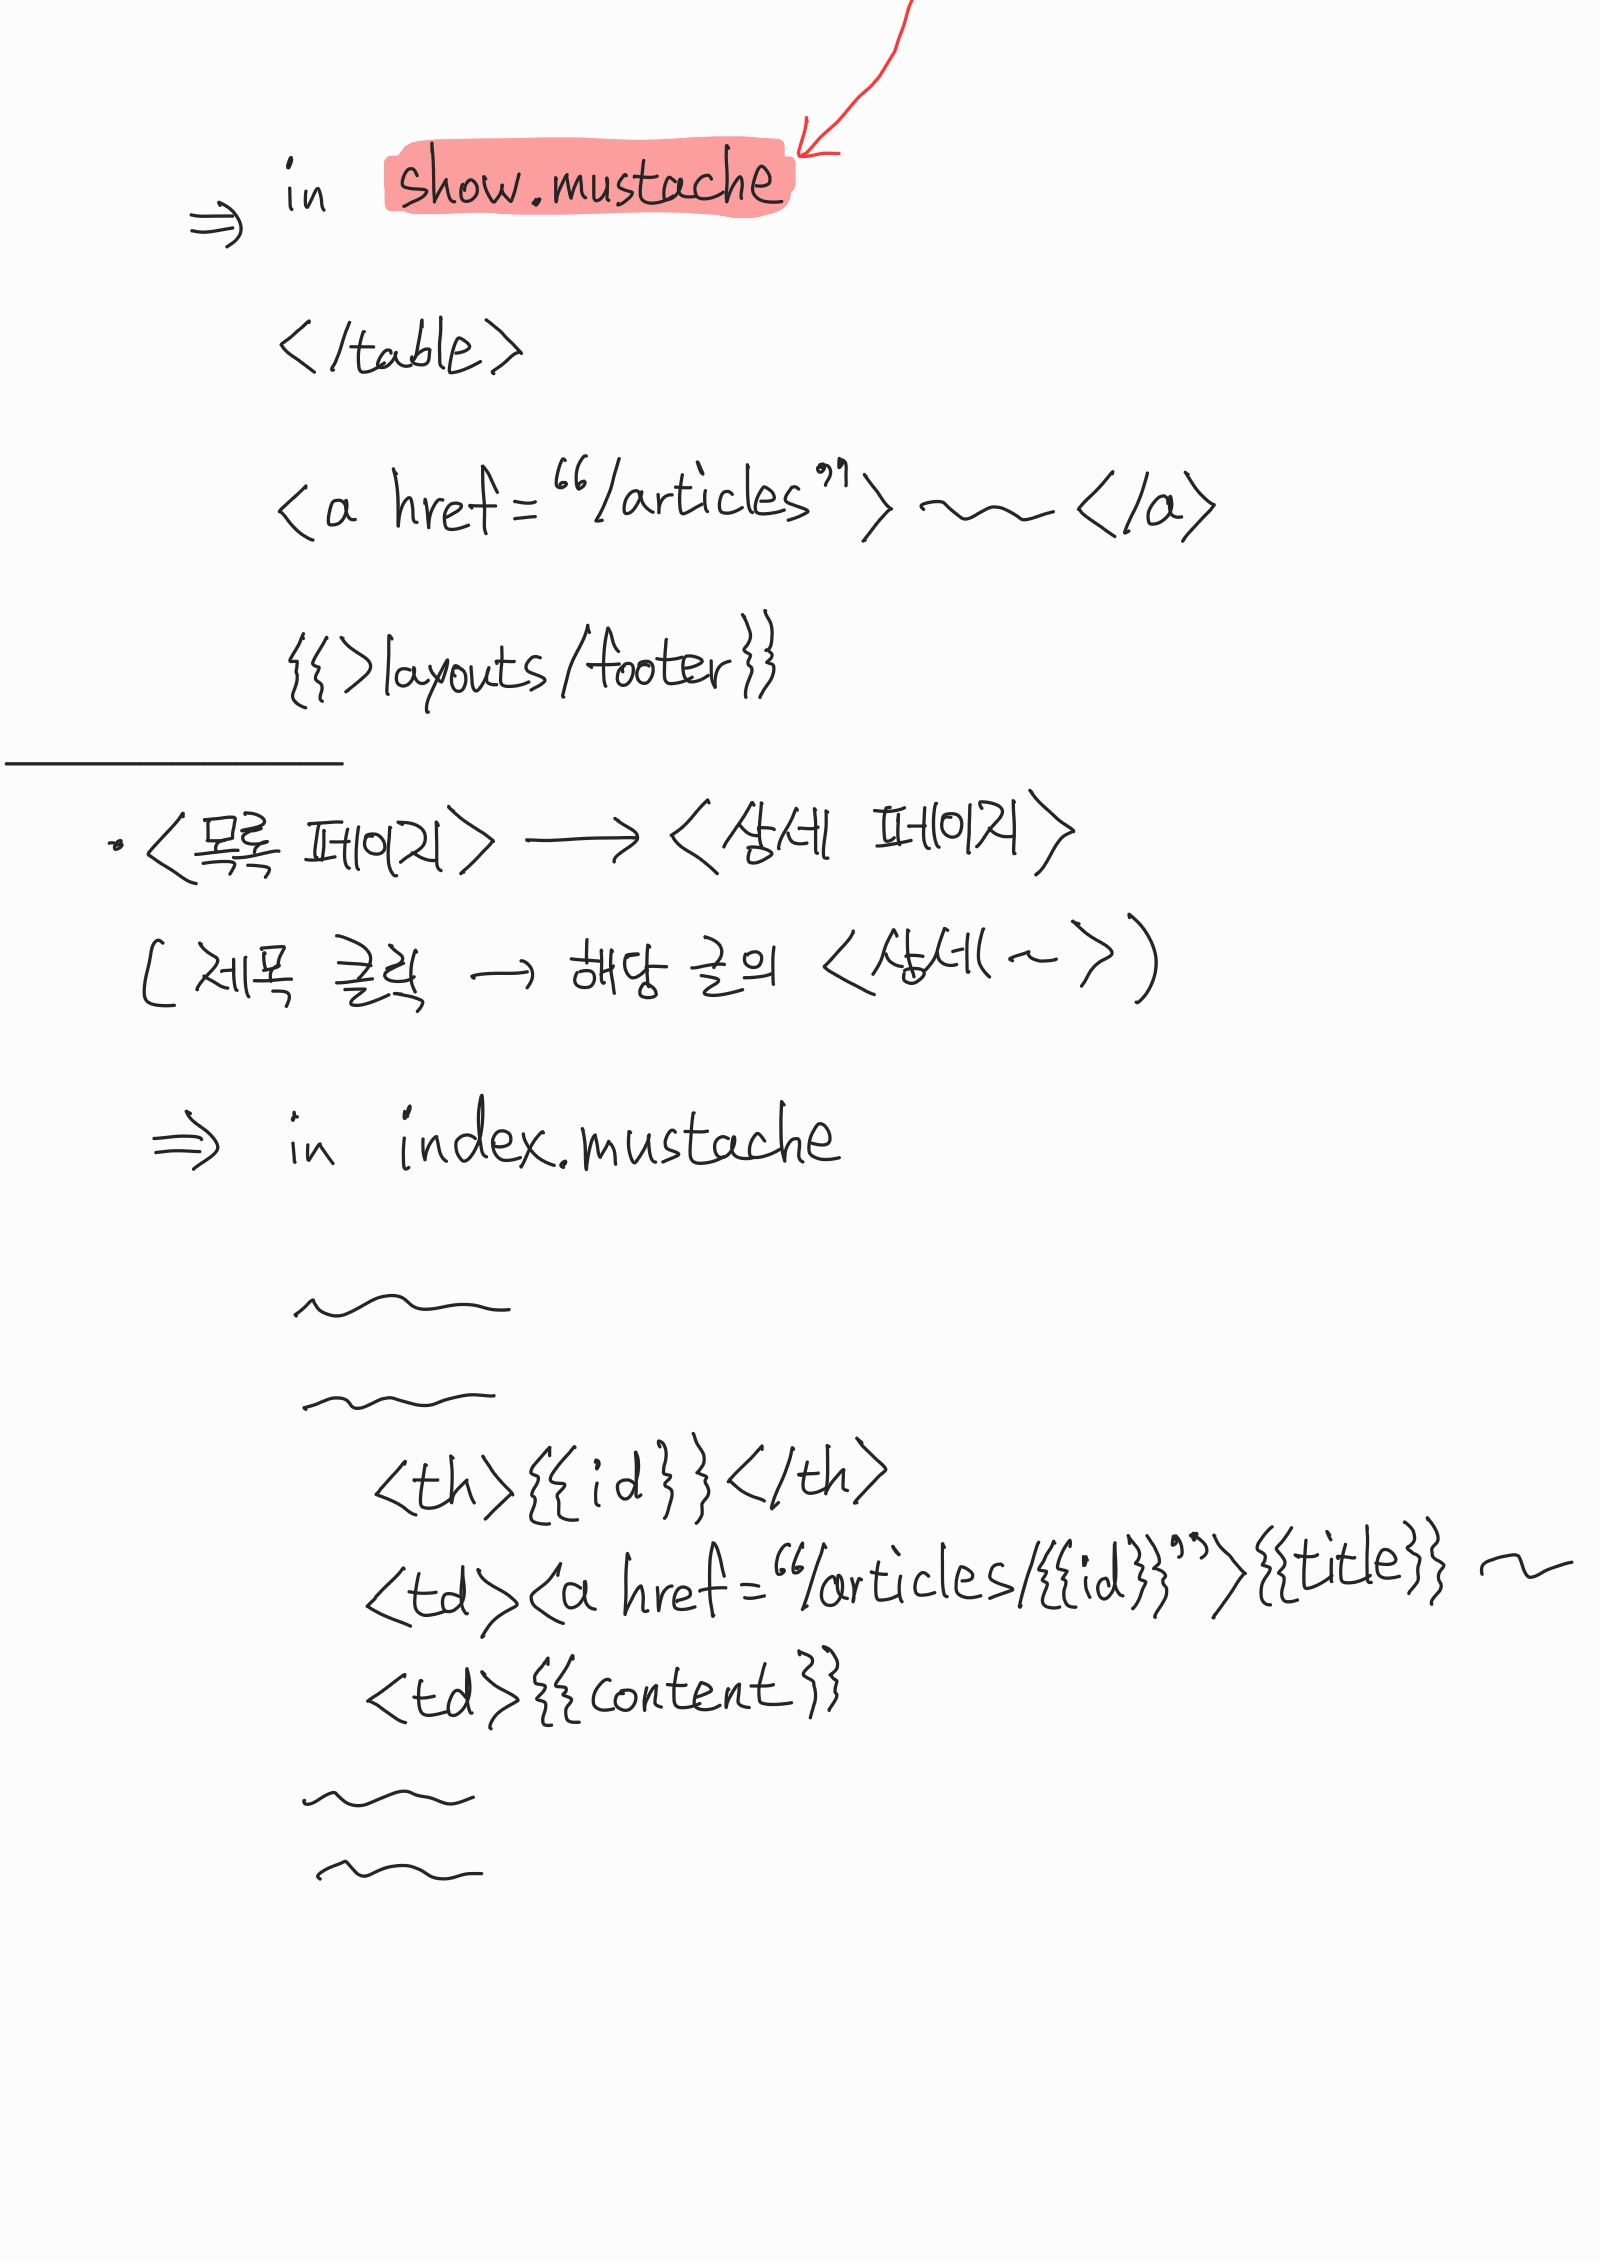 ⇒ in show.mustache
</table>
<a href="/articles"> ~ </a>
{{>layouts/footer}}
· <목록 페이지> → <상세 페이지>
( 제목 클릭 → 해당 글의 <상세 ~> )
⇒ in index.mustache
<th>{{id}}</th>
<td><a href="/articles/{{id}}">{{title}} ~
<td>{{content}}